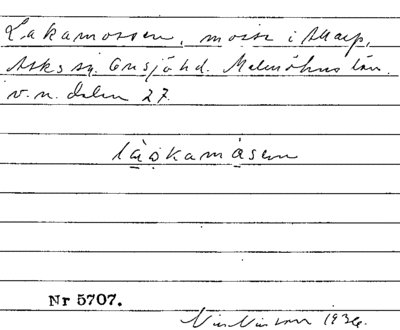 Lakamossen, mosse i Allarp,
Asks sn. Onsjöhd. Malmöhus län.
v.n. delen 27.
låo̜kamåsen
Nr 5707.
Nils Nilsson 1934.